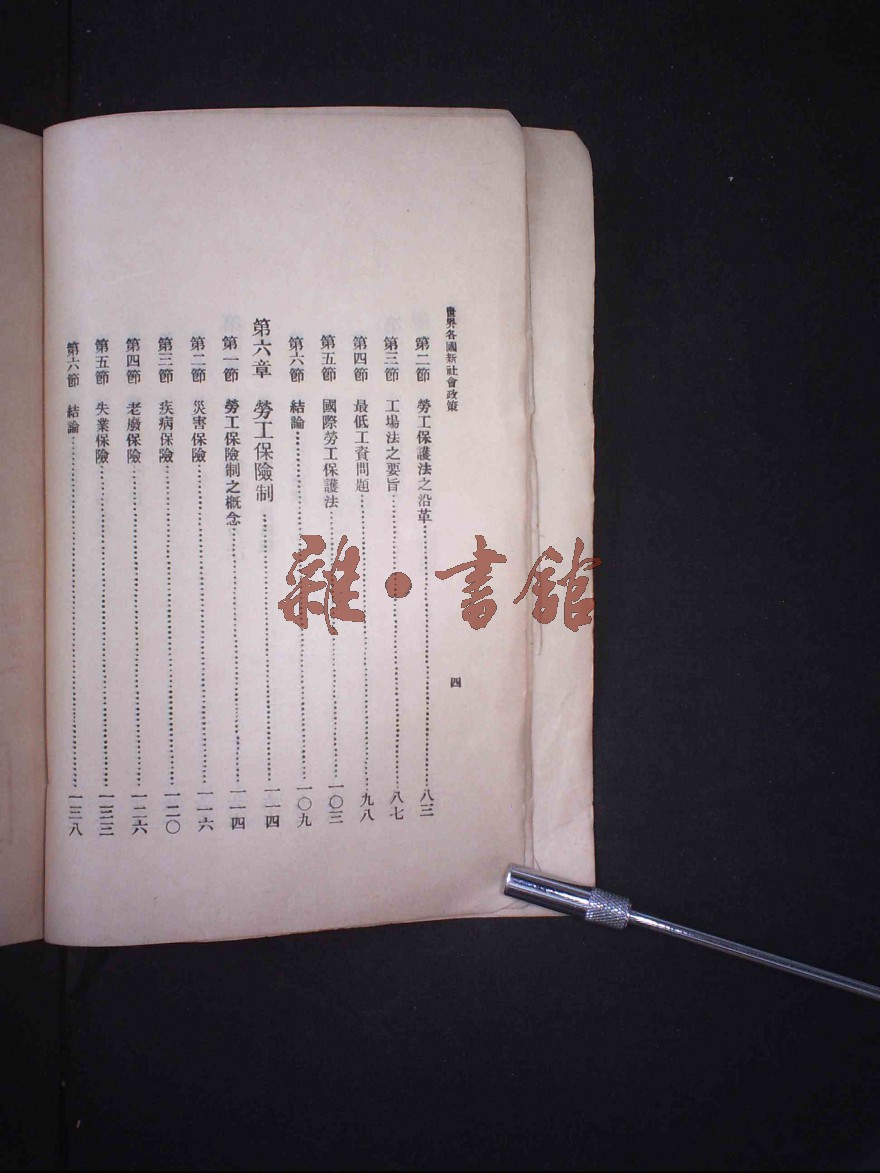 世界各國新社會政策
四
第二節 勞工保護法之沿革……八三
第三節 工場法之要旨……八七
第四節 最低工資問題……九八
第五節 國際勞工保護法……一〇三
第六節 結論……一〇九
第六章 勞工保險制……一一四
第一節 勞工保險制之概念……一一四
第二節 災害保險……一一六
第三節 疾病保險……一二〇
第四節 老廢保險……一二六
第五節 失業保險……一三三
第六節 結論……一三八
雜·書館